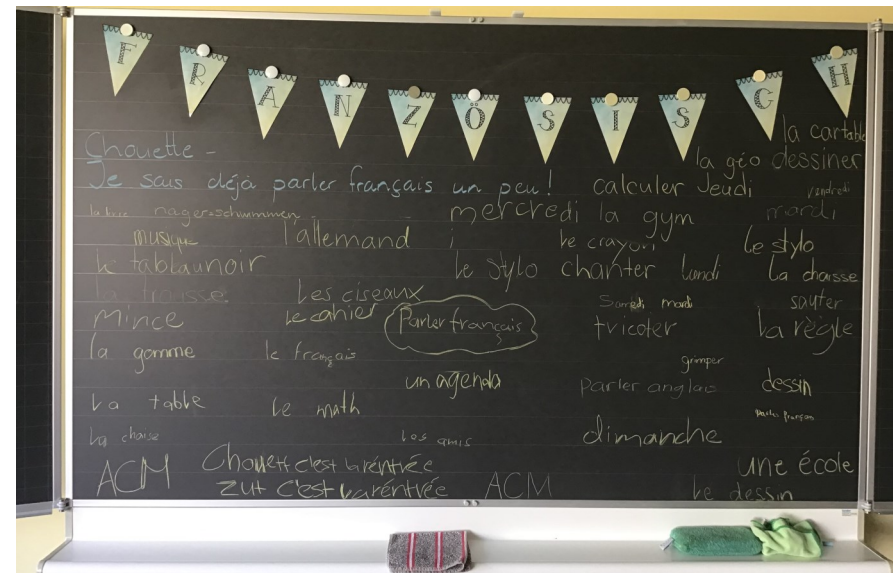 FRANZÖSISCH
la cartable
Chouette -
la géo dessiner
Je sais déjà parler français un peu! calculer Jeudi vendredi
nager=schwimmen mercredi la gym mardi
musique l'allemand i le crayon le stylo
le tablaunoir le stylo chanter lundi la chaisse
la trousse Les ciseaux Samedi mardi sauter
Mince le cahier Parler français tricoter la règle
la gomme le français grimper
un agenda parler anglais dessin
la table le math parler français
la chaise les amis dimanche
ACM Chouett c'est la réntrée une école
Zut c'est la réntrée ACM le dessin